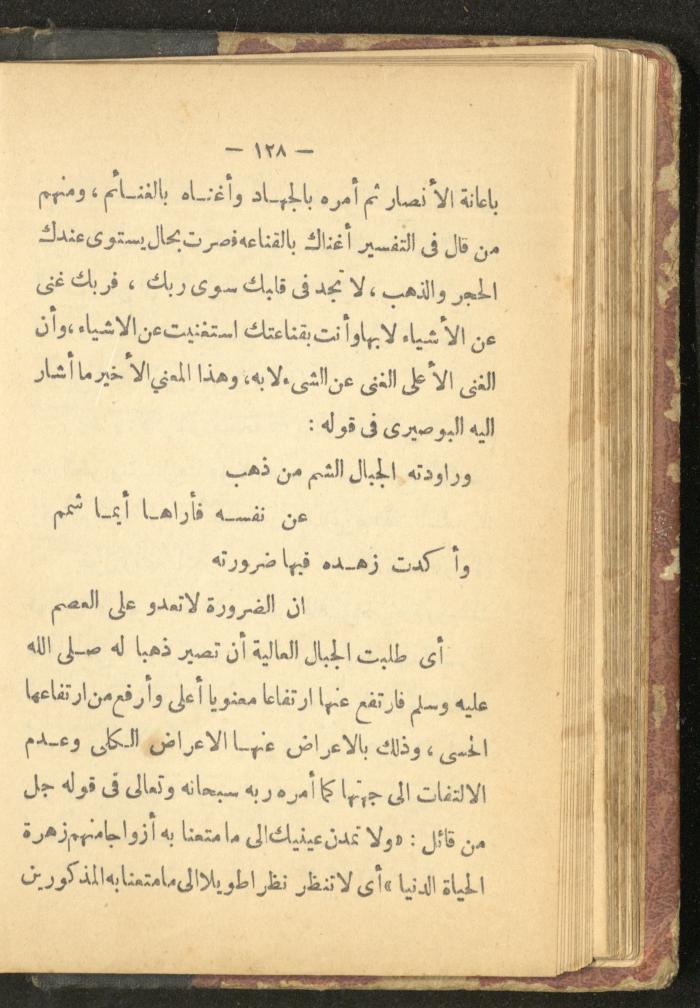 — ١٢٨ —
باعانة الأنصار ثم أمره بالجهاد وأغناه بالغنائم ، ومنهم
من قال فى التفسير أغناك بالقناعه فصرت بحال يستوى عندك
الحجر والذهب ، لا تجد فى قلبك سوى ربك ، فربك غنى
عن الأشياء لا بها وأنت بقناعتك استغنيت عن الاشياء ، وأن
الغنى الأعلى الغنى عن الشىء لا به ، وهذا المعني الأخير ما أشار
اليه البوصيرى فى قوله :
وراودته الجبال الشم من ذهب
عن نفسه فأراها أيما شمم
وأكدت زهده فيها ضرورته
ان الضرورة لا تعدو على العصم
أى طلبت الجبال العالية أن تصير ذهبا له صلى الله
عليه وسلم فارتفع عنها ارتفاعا معنويا أعلى وأرفع من ارتفاعها
الحسى ، وذلك بالاعراض عنها الاعراض الكلى وعدم
الالتفات الى جهتها كما أمره ربه سبحانه وتعالى فى قوله جل
من قائل : «ولا تمدن عينيك الى ما متعنا به أزواجا منهم زهرة
الحياة الدنيا» أى لا تنظر نظرا طويلا الى ما متعنا به المذكورين